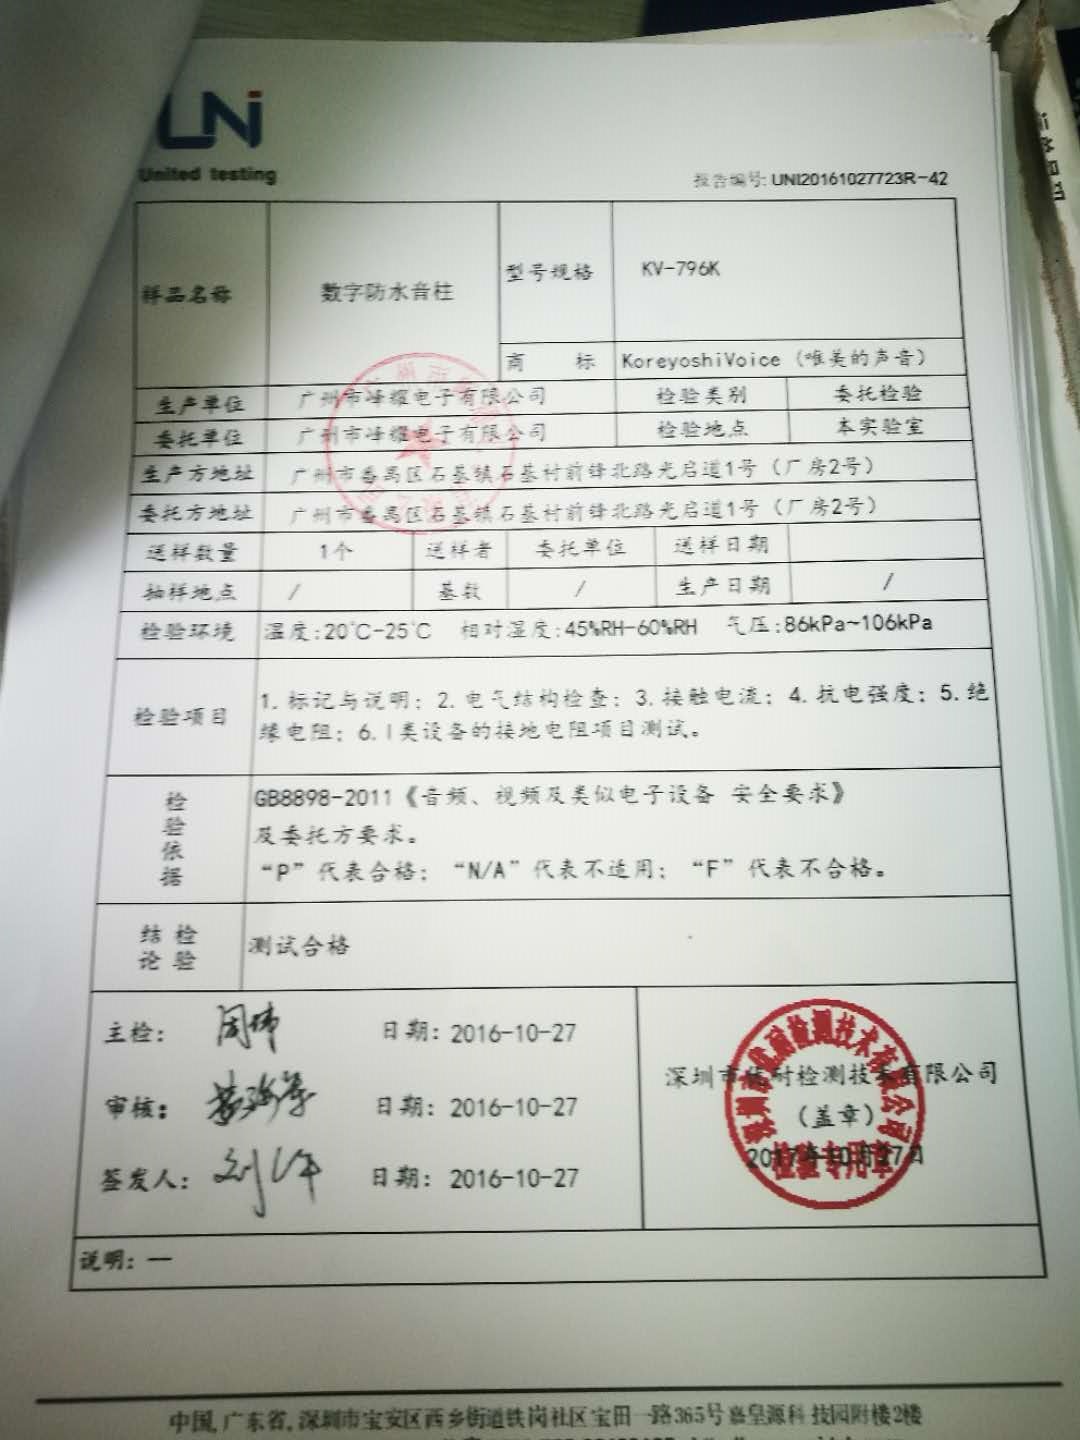 UNi
United testing
报告编号: UNI20161027723R-42
样品名称 数字防水音柱 型号规格 KV-796K
商 标 KoreyoshiVoice (唯美的声音)
生产单位 广州市峰耀电子有限公司 检验类别 委托检验
委托单位 广州市峰耀电子有限公司 检验地点 本实验室
生产方地址 广州市番禺区石基镇石基村前锋北路光启道1号（厂房2号）
委托方地址 广州市番禺区石基镇石基村前锋北路光启道1号（厂房2号）
送样数量 1个 送样者 委托单位 送样日期
抽样地点 / 基数 / 生产日期 /
检验环境 温度:20℃-25℃ 相对湿度:45%RH-60%RH 气压:86kPa~106kPa
检验项目 1.标记与说明；2.电气结构检查；3.接触电流；4.抗电强度；5.绝
缘电阻；6.I类设备的接地电阻项目测试。
检验依据 GB8898-2011《音频、视频及类似电子设备 安全要求》
及委托方要求。
“P”代表合格；“N/A”代表不适用；“F”代表不合格。
检验结论 测试合格
主检： 周伟 日期：2016-10-27
审核： 日期：2016-10-27
签发人： 日期：2016-10-27
深圳市优耐检测技术有限公司
（盖章）
2017年10月27日
深圳市优耐检测技术有限公司
检验专用章
说明：—
中国,广东省,深圳市宝安区西乡街道铁岗社区宝田一路365号嘉皇源科技园附楼2楼